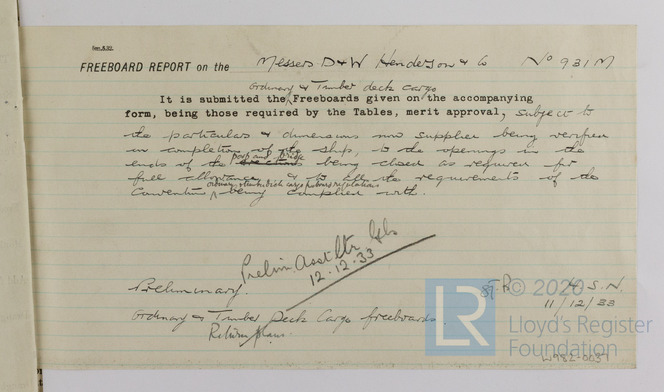 FREEBOARD REPORT on the Messrs D & W Henderson & Co No 931M
ordinary & Timber deck cargo
It is submitted the Freeboards given on the accompanying
form, being those required by the Tables, merit approval, subject to
the particulars & dimensions now supplied being verified
on completion of the ship, to the openings in the
poop and bridge
ends of the being closed as required for
full allowance & to the requirements of the
ordinary & timber deck cargo freeboard regulations
Convention being complied with.
Prelim. Asst Ltr Gls
12.12.33
Preliminary.
Ordinary & Timber Deck Cargo freeboards.
Return plans.
H.S.N.
11/12/33
© 2020
LR
Lloyd's Register
Foundation
W982-0037